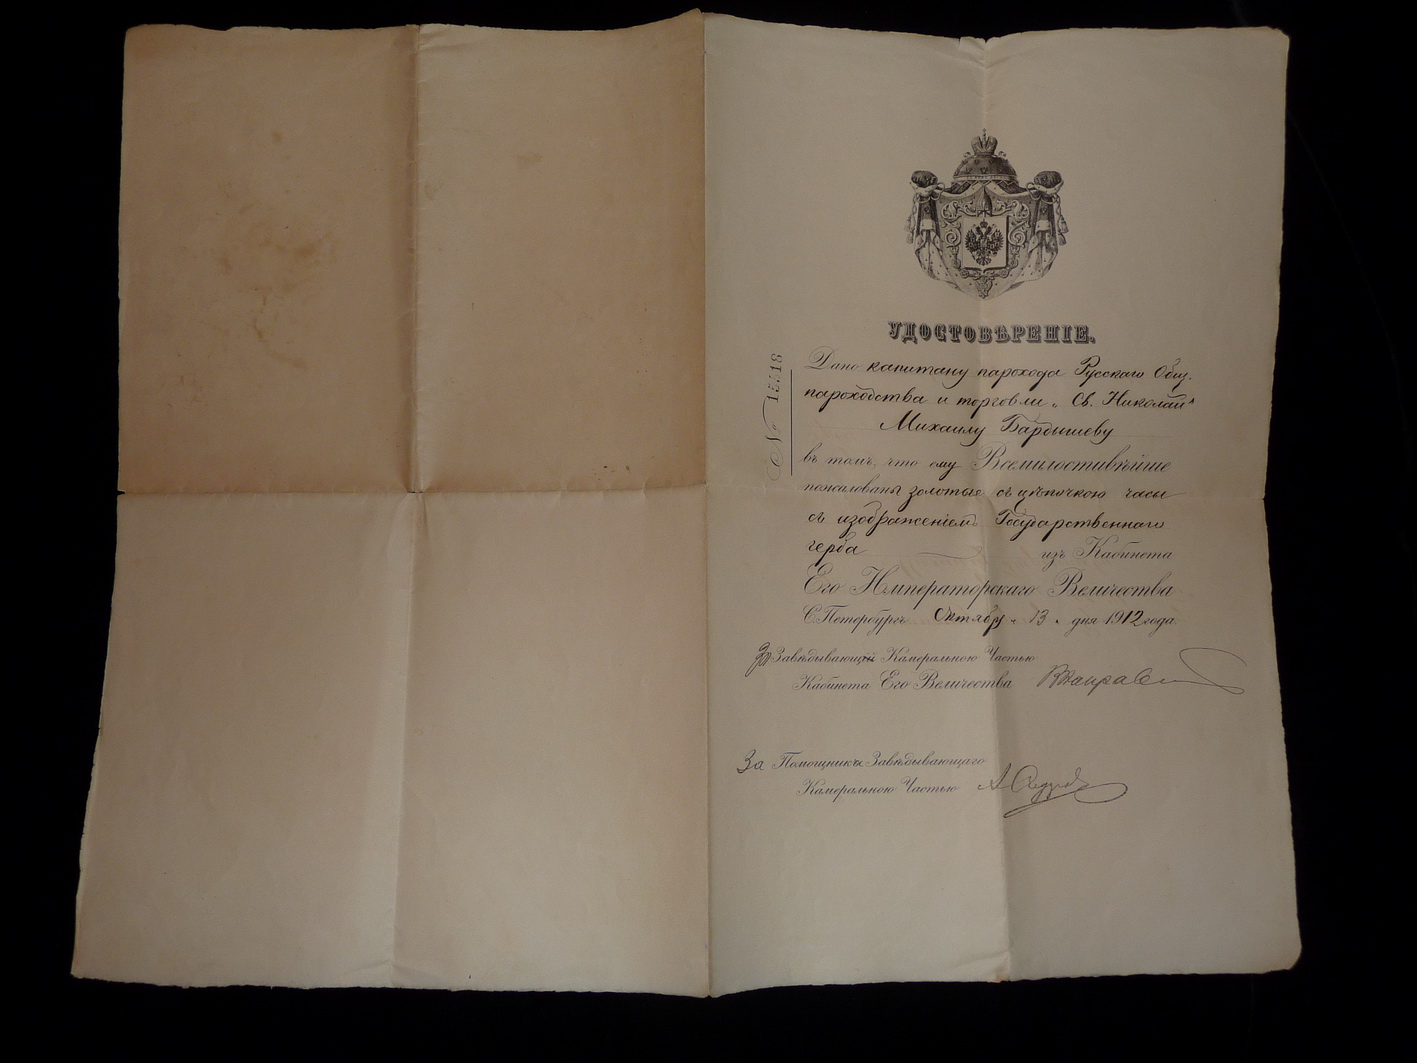 УДОСТОВѢРЕНІЕ.
№ 15518
Дано капитану парохода Русскаго Общ.
пароходства и торговли „Св. Николай“
Михаилу Бардышеву
въ томъ, что ему Всемилостивѣйше
пожалованы золотые съ цѣпочкою часы
съ изображеніемъ Государственнаго
герба изъ Кабинета
Его Императорскаго Величества
С.Петербургъ Октября „ 13 „ дня 1912 года.
За Завѣдывающій Камеральною Частью
Кабинета Его Величества
За Помощника Завѣдывающаго
Камеральною Частью